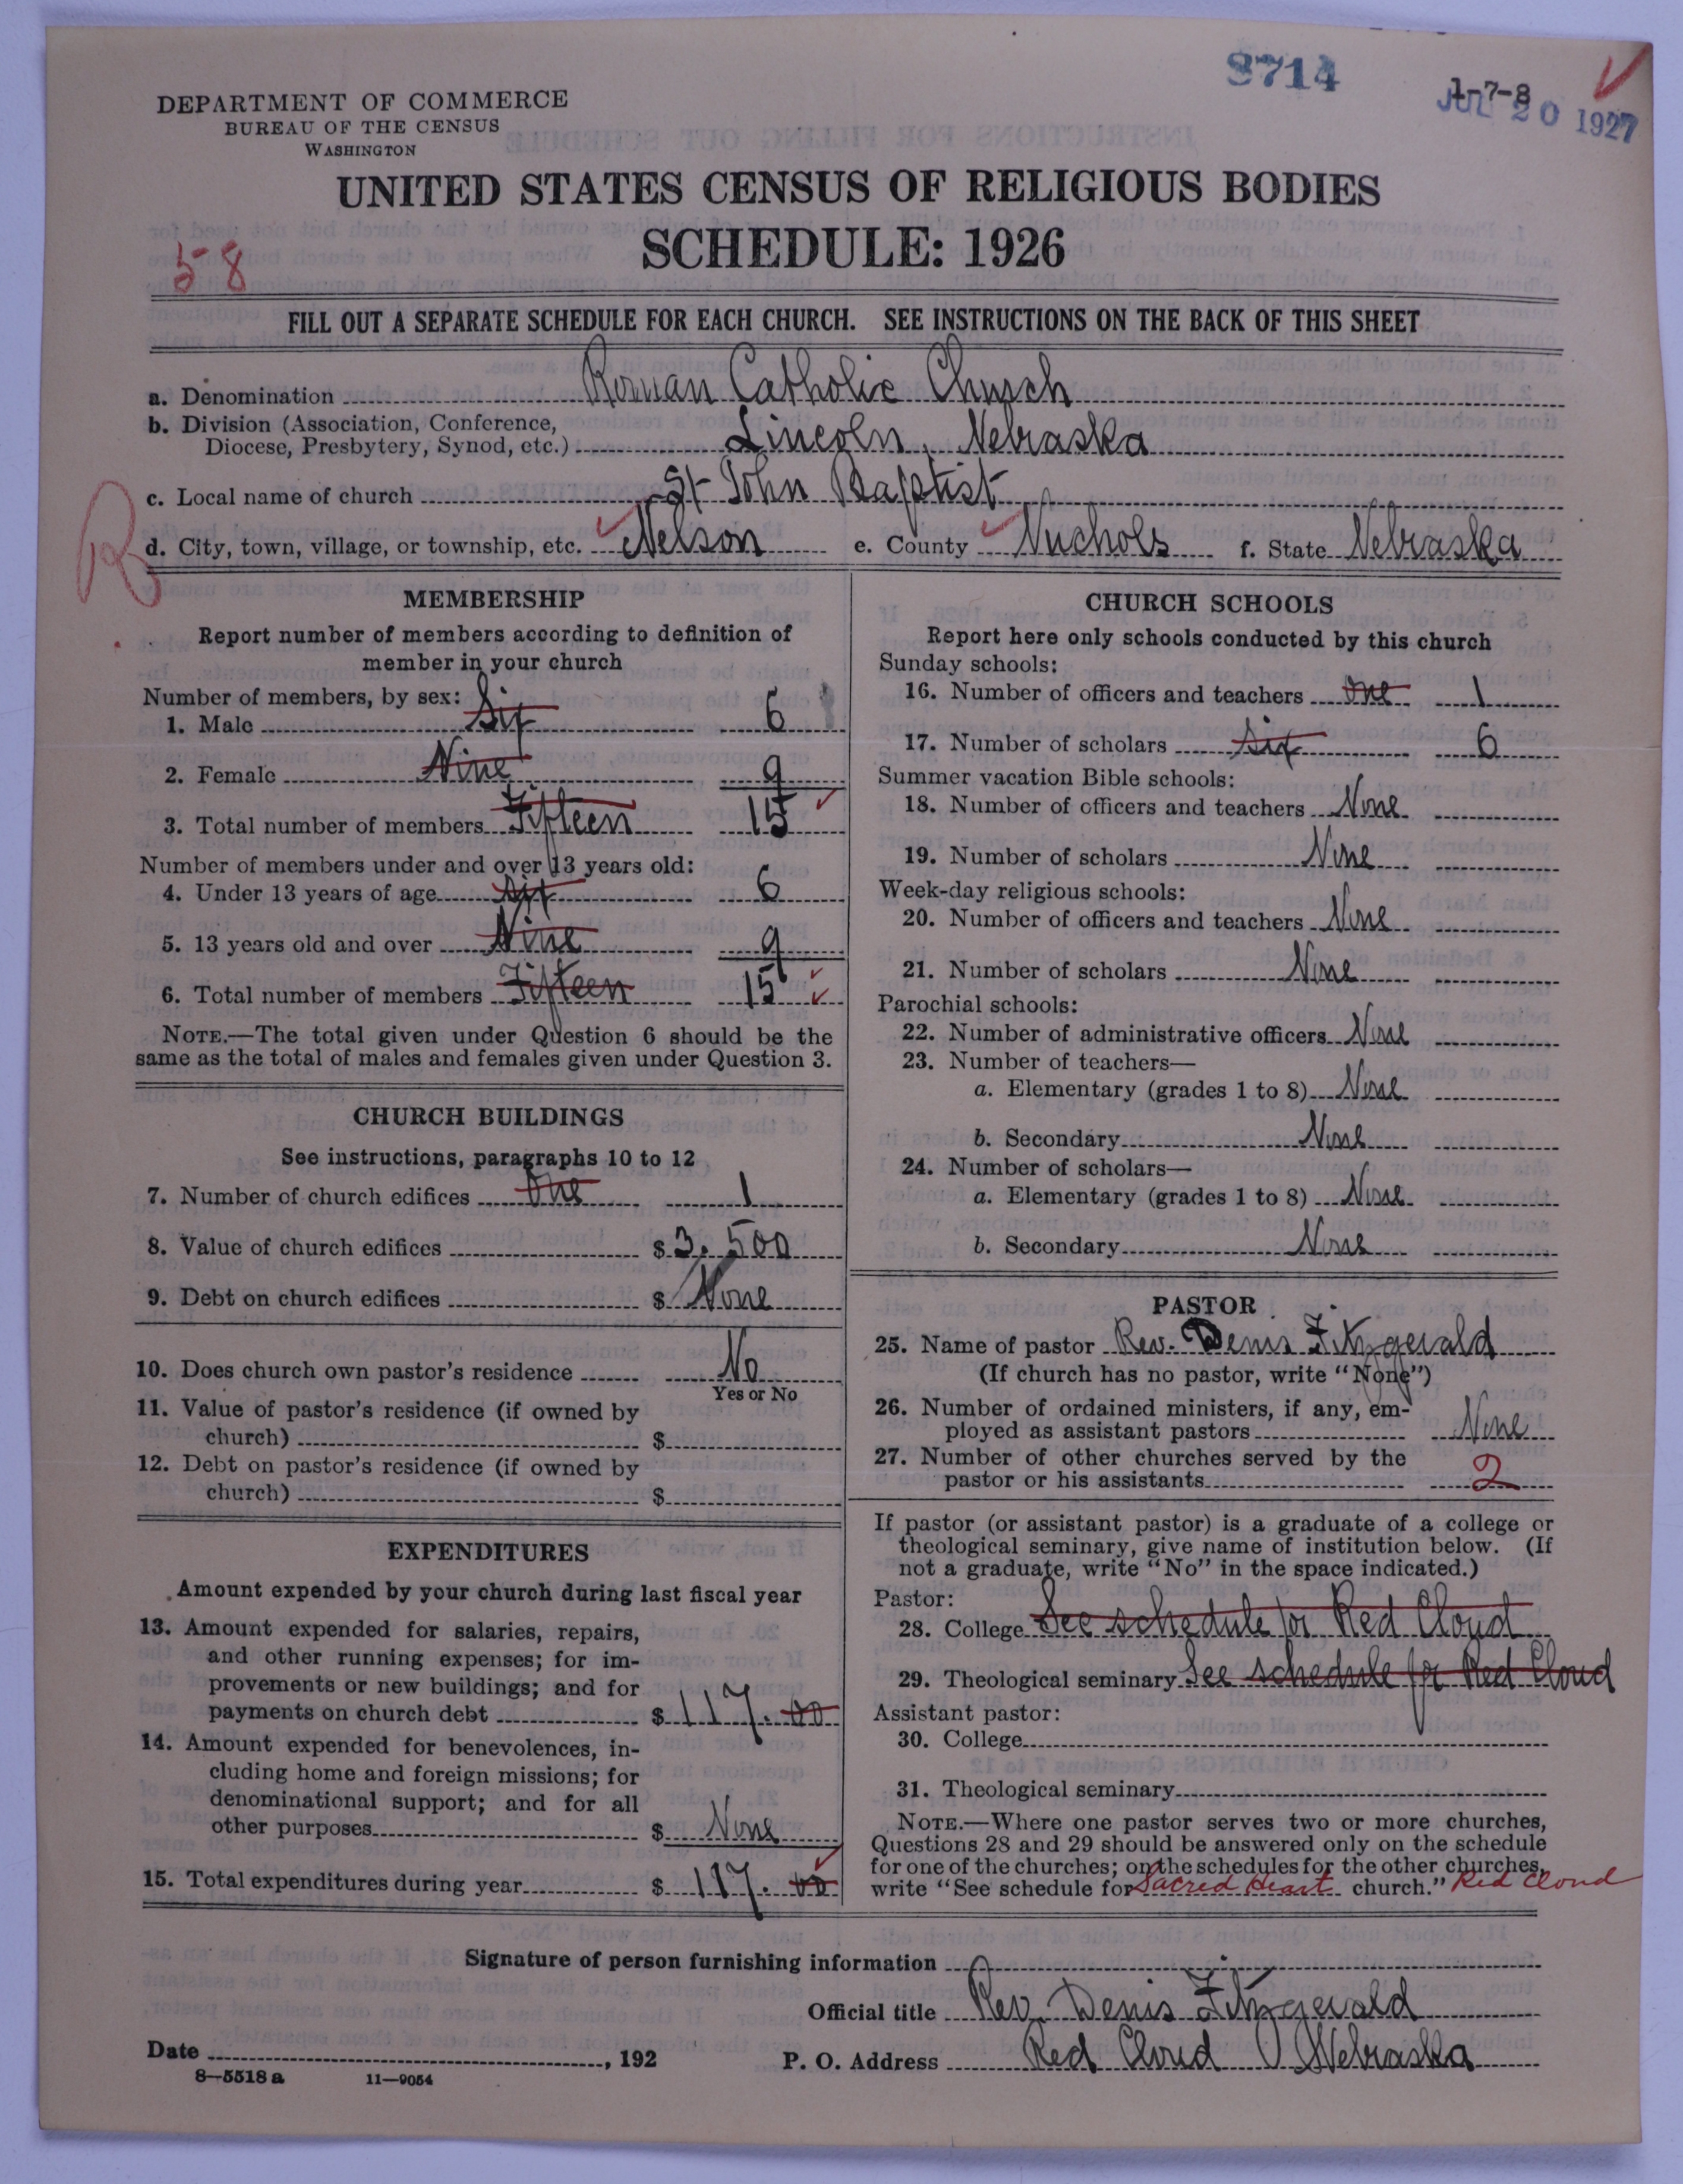 8714
1-7-8
JUL 20 1927
DEPARTMENT OF COMMERCE
BUREAU OF THE CENSUS
WASHINGTON
UNITED STATES CENSUS OF RELIGIOUS BODIES
SCHEDULE: 1926
5-8
FILL OUT A SEPARATE SCHEDULE FOR EACH CHURCH. SEE INSTRUCTIONS ON THE BACK OF THIS SHEET
a. Denomination Roman Catholic Church
b. Division (Association, Conference,
Diocese, Presbytery, Synod, etc.) Lincoln, Nebraska
c. Local name of church St John Baptist
R
d. City, town, village, or township, etc. Nelson e. County Nuchols f. State Nebraska
MEMBERSHIP
Report number of members according to definition of
member in your church
Number of members, by sex:
1. Male Six 6
2. Female Nine 9
3. Total number of members Fifteen 15
Number of members under and over 13 years old:
4. Under 13 years of age Six 6
5. 13 years old and over Nine 9
6. Total number of members Fifteen 15
NOTE.—The total given under Question 6 should be the
same as the total of males and females given under Question 3.
CHURCH BUILDINGS
See instructions, paragraphs 10 to 12
7. Number of church edifices One 1
8. Value of church edifices $ 3.500
9. Debt on church edifices $ None
10. Does church own pastor's residence No
Yes or No
11. Value of pastor's residence (if owned by
church) $
12. Debt on pastor's residence (if owned by
church) $
EXPENDITURES
Amount expended by your church during last fiscal year
13. Amount expended for salaries, repairs,
and other running expenses; for im-
provements or new buildings; and for
payments on church debt $ 117.00
14. Amount expended for benevolences, in-
cluding home and foreign missions; for
denominational support; and for all
other purposes $ None
15. Total expenditures during year $ 117.00
CHURCH SCHOOLS
Report here only schools conducted by this church
Sunday schools:
16. Number of officers and teachers One 1
17. Number of scholars Six 6
Summer vacation Bible schools:
18. Number of officers and teachers None
19. Number of scholars None
Week-day religious schools:
20. Number of officers and teachers None
21. Number of scholars None
Parochial schools:
22. Number of administrative officers None
23. Number of teachers—
a. Elementary (grades 1 to 8) None
b. Secondary None
24. Number of scholars—
a. Elementary (grades 1 to 8) None
b. Secondary None
PASTOR
25. Name of pastor Rev. Denis Fitzgerald
(If church has no pastor, write "None")
26. Number of ordained ministers, if any, em-
ployed as assistant pastors None
27. Number of other churches served by the
pastor or his assistants 2
If pastor (or assistant pastor) is a graduate of a college or
theological seminary, give name of institution below. (If
not a graduate, write "No" in the space indicated.)
Pastor:
28. College See schedule for Red Cloud
29. Theological seminary See schedule for Red Cloud
Assistant pastor:
30. College
31. Theological seminary
NOTE.—Where one pastor serves two or more churches,
Questions 28 and 29 should be answered only on the schedule
for one of the churches; on the schedules for the other churches,
write "See schedule for Sacred Heart church." Red Cloud
Signature of person furnishing information
Official title Rev. Denis Fitzgerald
Date , 192 P. O. Address Red Cloud Nebraska
8—5518 a 11—9054